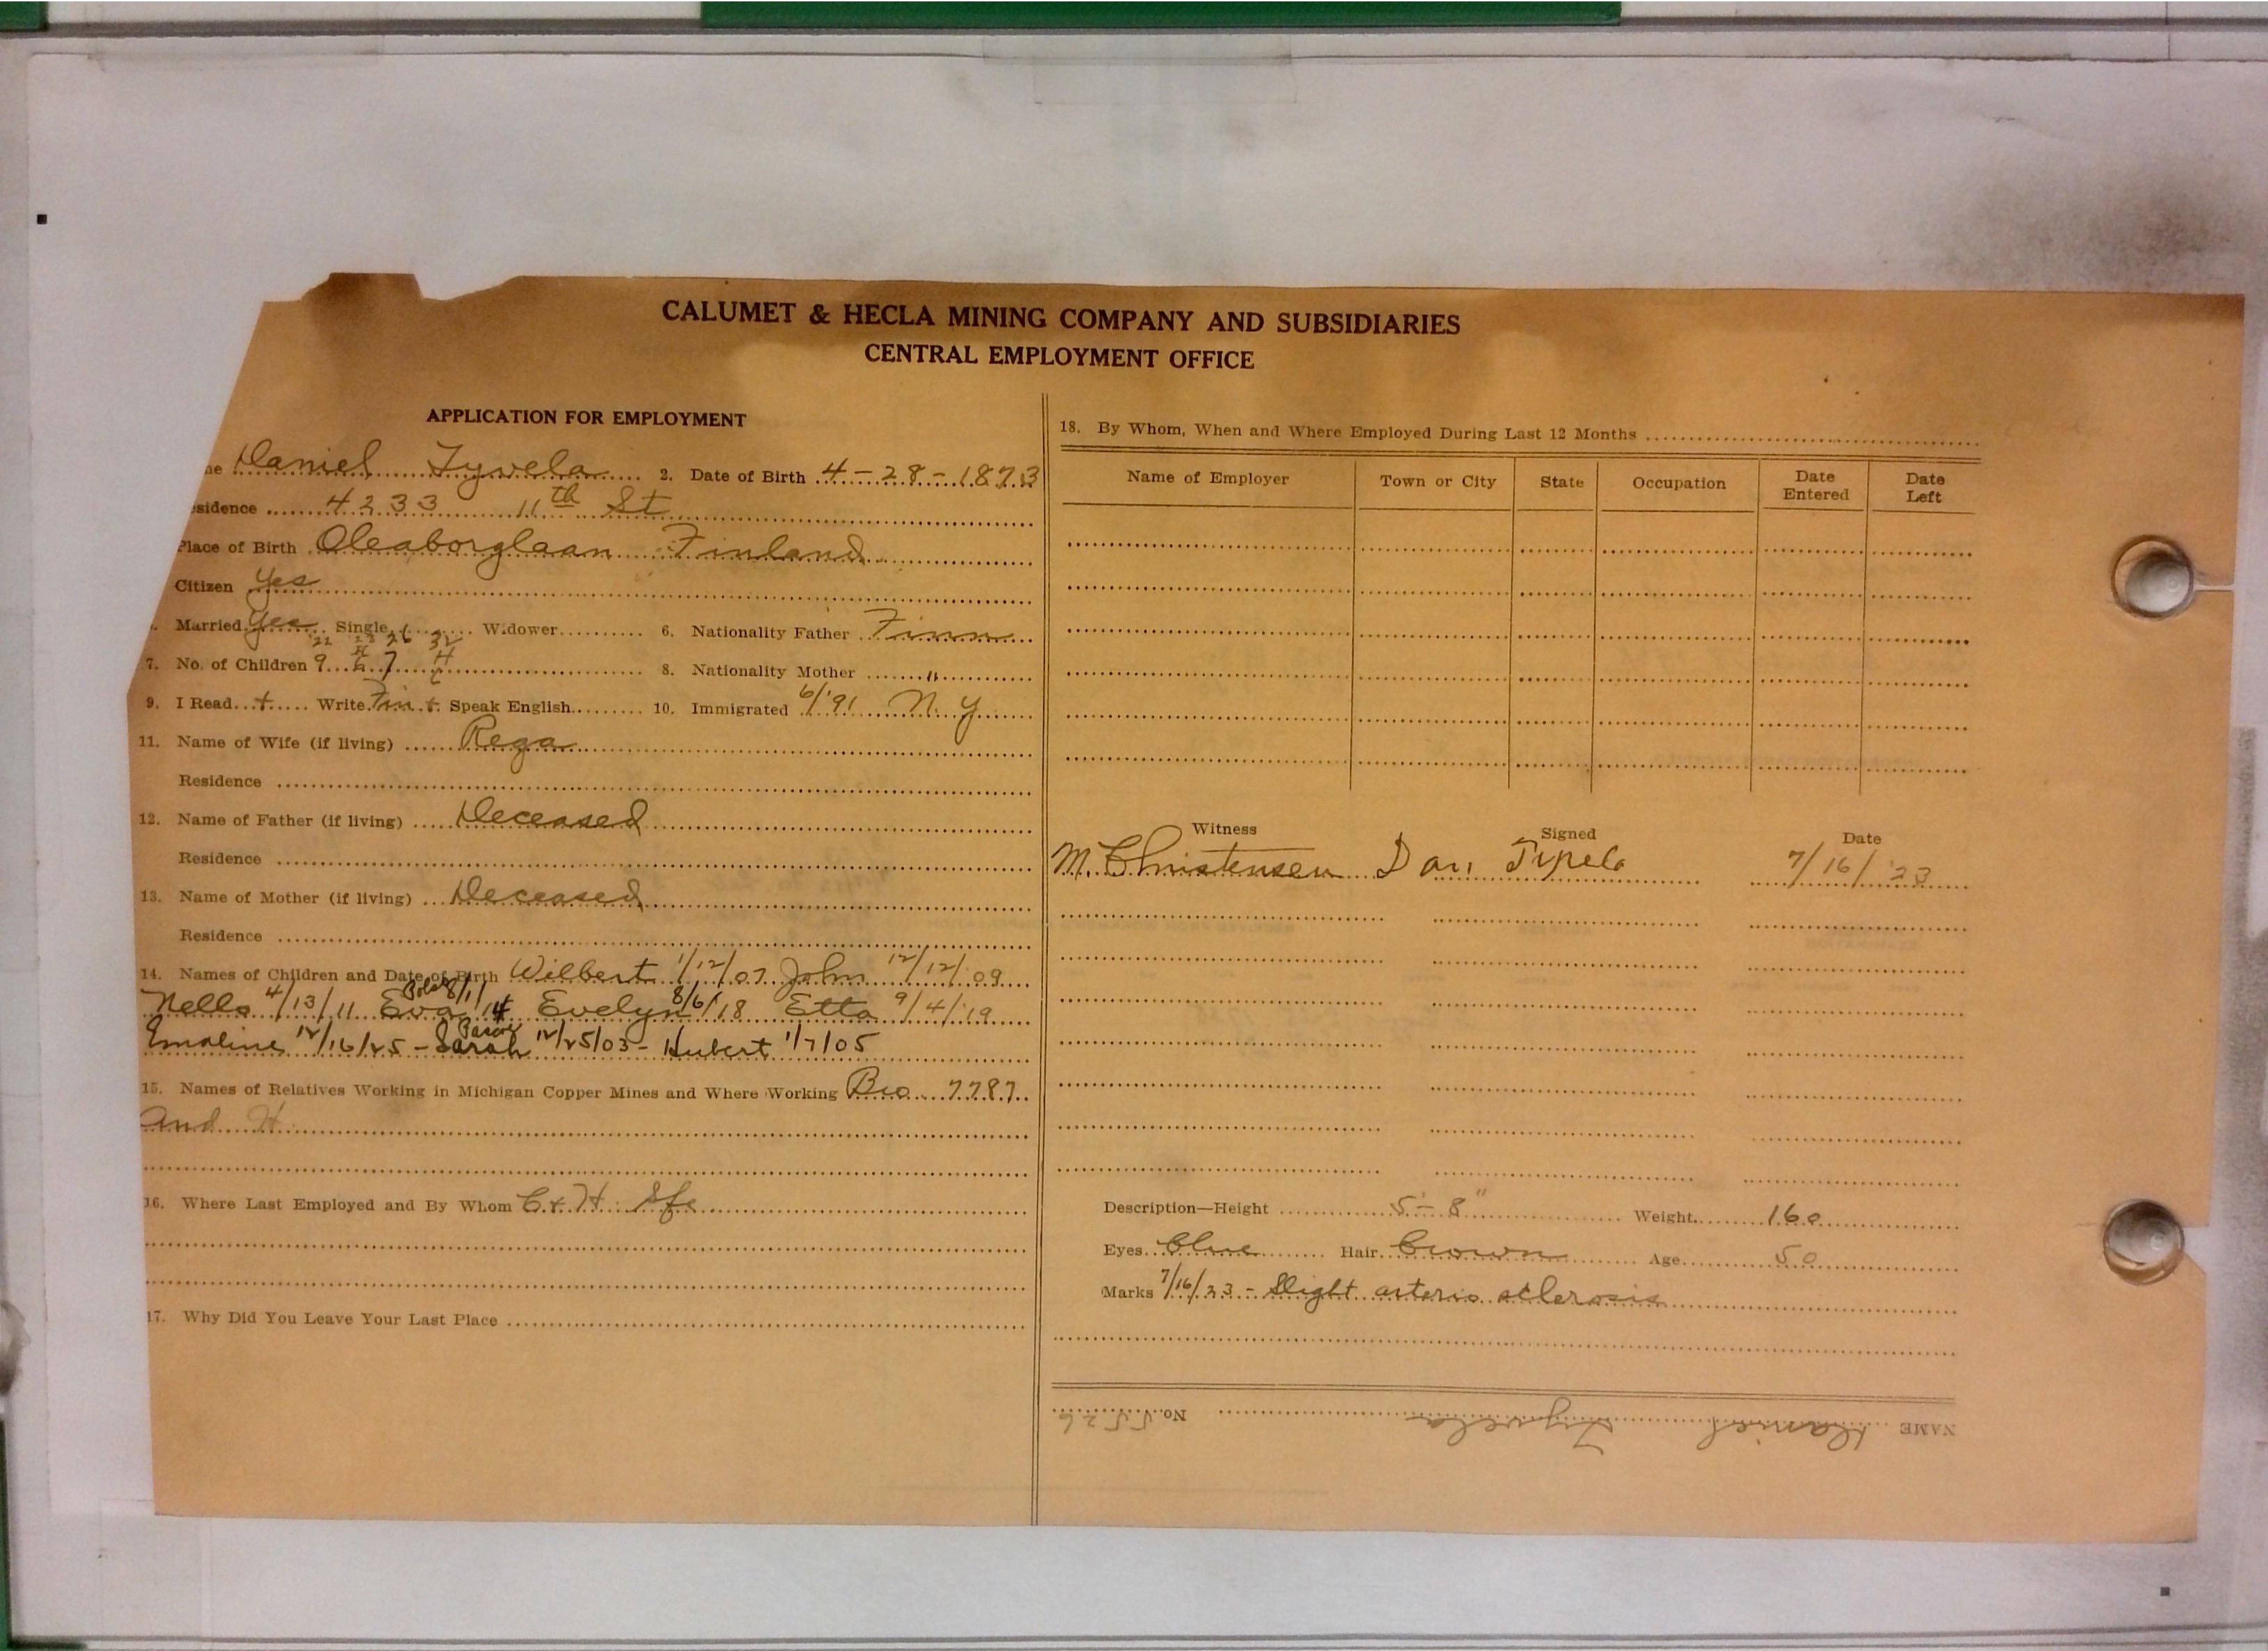 CALUMET & HECLA MINING COMPANY AND SUBSIDIARIES
CENTRAL EMPLOYMENT OFFICE
APPLICATION FOR EMPLOYMENT
me Daniel Tyvela 2. Date of Birth 4-28-1873
sidence 4233 11th St
Place of Birth Oleaborglaan Finland
Citizen Yes
Married Yes Single Widower 6. Nationality Father Finn
'22 26 32
7. No. of Children 9 7 4 8. Nationality Mother "
9. I Read + Write Fin + Speak English 10. Immigrated 6/'91 N.Y
11. Name of Wife (if living) Rega
Residence
12. Name of Father (if living) Deceased
Residence
13. Name of Mother (if living) Deceased
Residence
14. Names of Children and Date of Birth Wilbert 1/12/07 John 12/12/09
Nello 4/13/11 Eva 8/1/14 Evelyn 8/6/18 Etta 9/4/19
Emaline 12/16/25 - Sarah 12/25/03 - Hubert 1/7/05
15. Names of Relatives Working in Michigan Copper Mines and Where Working Bro 7787
and H
16. Where Last Employed and By Whom C & H Sfc
17. Why Did You Leave Your Last Place
18. By Whom, When and Where Employed During Last 12 Months
Name of Employer Town or City State Occupation Date Entered Date Left
Witness Signed Date
M. Christensen Dan Tipela 7/16/'23
Description—Height 5'-8" Weight 160
Eyes Blue Hair Brown Age 50
Marks 7/16/23 - Slight arterio sclerosis
NAME Daniel Tyvela No. 5526